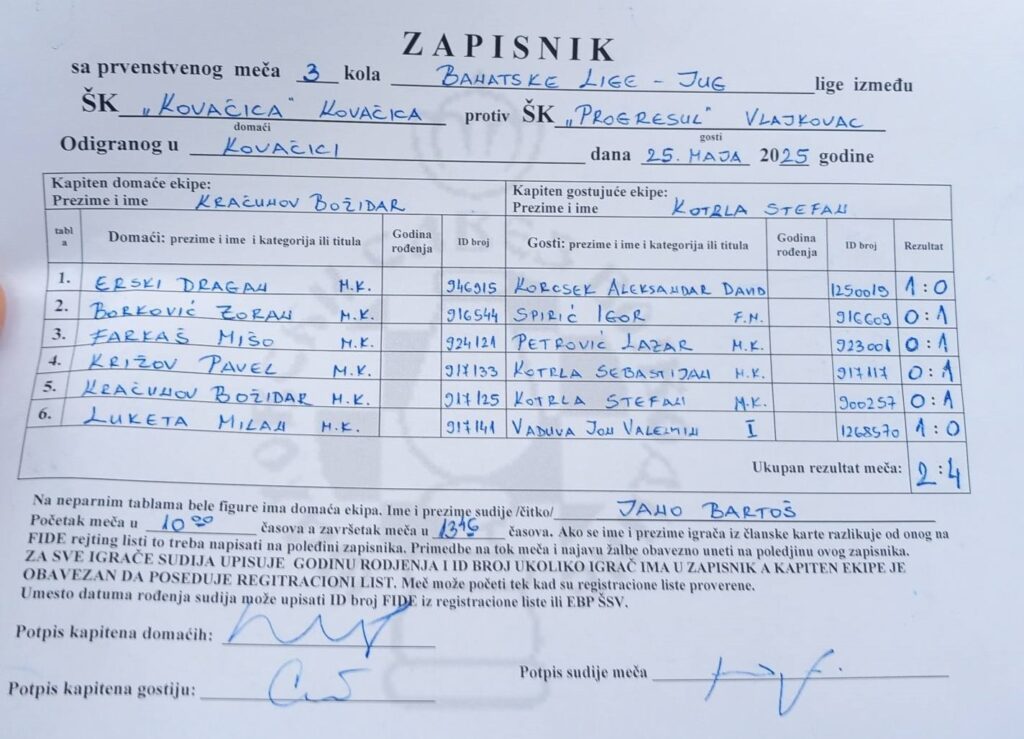 ZAPISNIK
sa prvenstvenog meča 3 kola BANATSKE LIGE - JUG lige između
ŠK „KOVAČICA" KOVAČICA protiv ŠK „PROGRESUL" VLAJKOVAC
domaći gosti
Odigranog u KOVAČICI dana 25. MAJA 2025 godine
Kapiten domaće ekipe: Kapiten gostujuće ekipe:
Prezime i ime KRAČUNOV BOŽIDAR Prezime i ime KOTRLA STEFAN
tabla Domaći: prezime i ime i kategorija ili titula Godina rođenja ID broj Gosti: prezime i ime i kategorija ili titula Godina rođenja ID broj Rezultat
1. ERSKI DRAGAN M.K. 946915 KORCSEK ALEKSANDAR DAVID 1250019 1:0
2. BORKOVIĆ ZORAN M.K. 916544 SPIRIĆ IGOR F.M. 916609 0:1
3. FARKAŠ MIŠO M.K. 924121 PETROVIĆ LAZAR M.K. 923001 0:1
4. KRIŽOV PAVEL M.K. 917133 KOTRLA SEBASTIJAN M.K. 917117 0:1
5. KRAČUNOV BOŽIDAR M.K. 917125 KOTRLA STEFAN M.K. 900257 0:1
6. LUKETA MILAN M.K. 917141 VADUVA JON VALENTIN I 1268570 1:0
Ukupan rezultat meča: 2:4
Na neparnim tablama bele figure ima domaća ekipa. Ime i prezime sudije /čitko/ JANO BARTOŠ
Početak meča u 10 00 časova a završetak meča u 13 45 časova. Ako se ime i prezime igrača iz članske karte razlikuje od onog na
FIDE rejting listi to treba napisati na poleđini zapisnika. Primedbe na tok meča i najavu žalbe obavezno uneti na poledjinu ovog zapisnika.
ZA SVE IGRAČE SUDIJA UPISUJE GODINU RODJENJA I ID BROJ UKOLIKO IGRAČ IMA U ZAPISNIK A KAPITEN EKIPE JE
OBAVEZAN DA POSEDUJE REGITRACIONI LIST. Meč može početi tek kad su registracione liste proverene.
Umesto datuma rođenja sudija može upisati ID broj FIDE iz registracione liste ili EBP ŠSV.
Potpis kapitena domaćih:
Potpis sudije meča
Potpis kapitena gostiju: